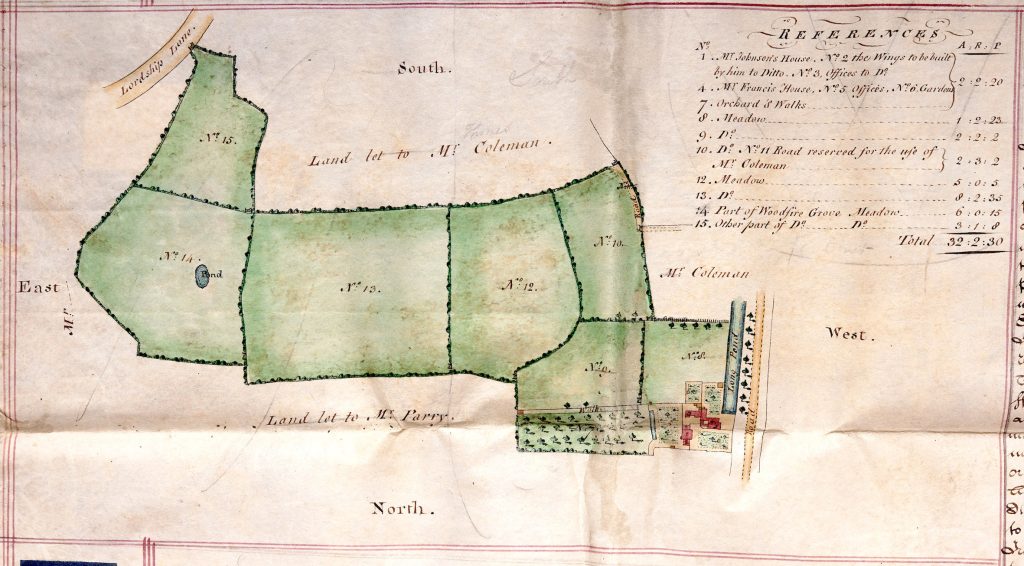 Lordship Lane.
South.
Land let to Mr. Coleman.
No. 15.
No. 14.
Pond
No. 13.
No. 12.
No. 10.
Mr. Coleman
East
Mr.
West.
No. 9.
No. 8.
Long Pond
Road
Walk
Land let to Mr. Parry.
North.
REFERENCES
No. A : R : P
1 . Mr. Johnson's House, No. 2 the Wings to be built
by him to Ditto. No. 3, Offices to Do.
4 . Mr. Francis House, No. 5 Offices, No. 6 Garden 2 : 2 : 20
7 . Orchard & Walks
8 . Meadow 1 : 2 : 23
9 . Do. 2 : 2 : 2
10. Do. No. 11 Road reserved for the use of
Mr. Coleman 2 : 3 : 2
12. Meadow 5 : 0 : 5
13. Do. 8 : 2 : 35
14 Part of Woodfire Grove Meadow 6 : 0 : 15
15. Other part of Do. Do. 3 : 1 : 8
Total 32 : 2 : 30